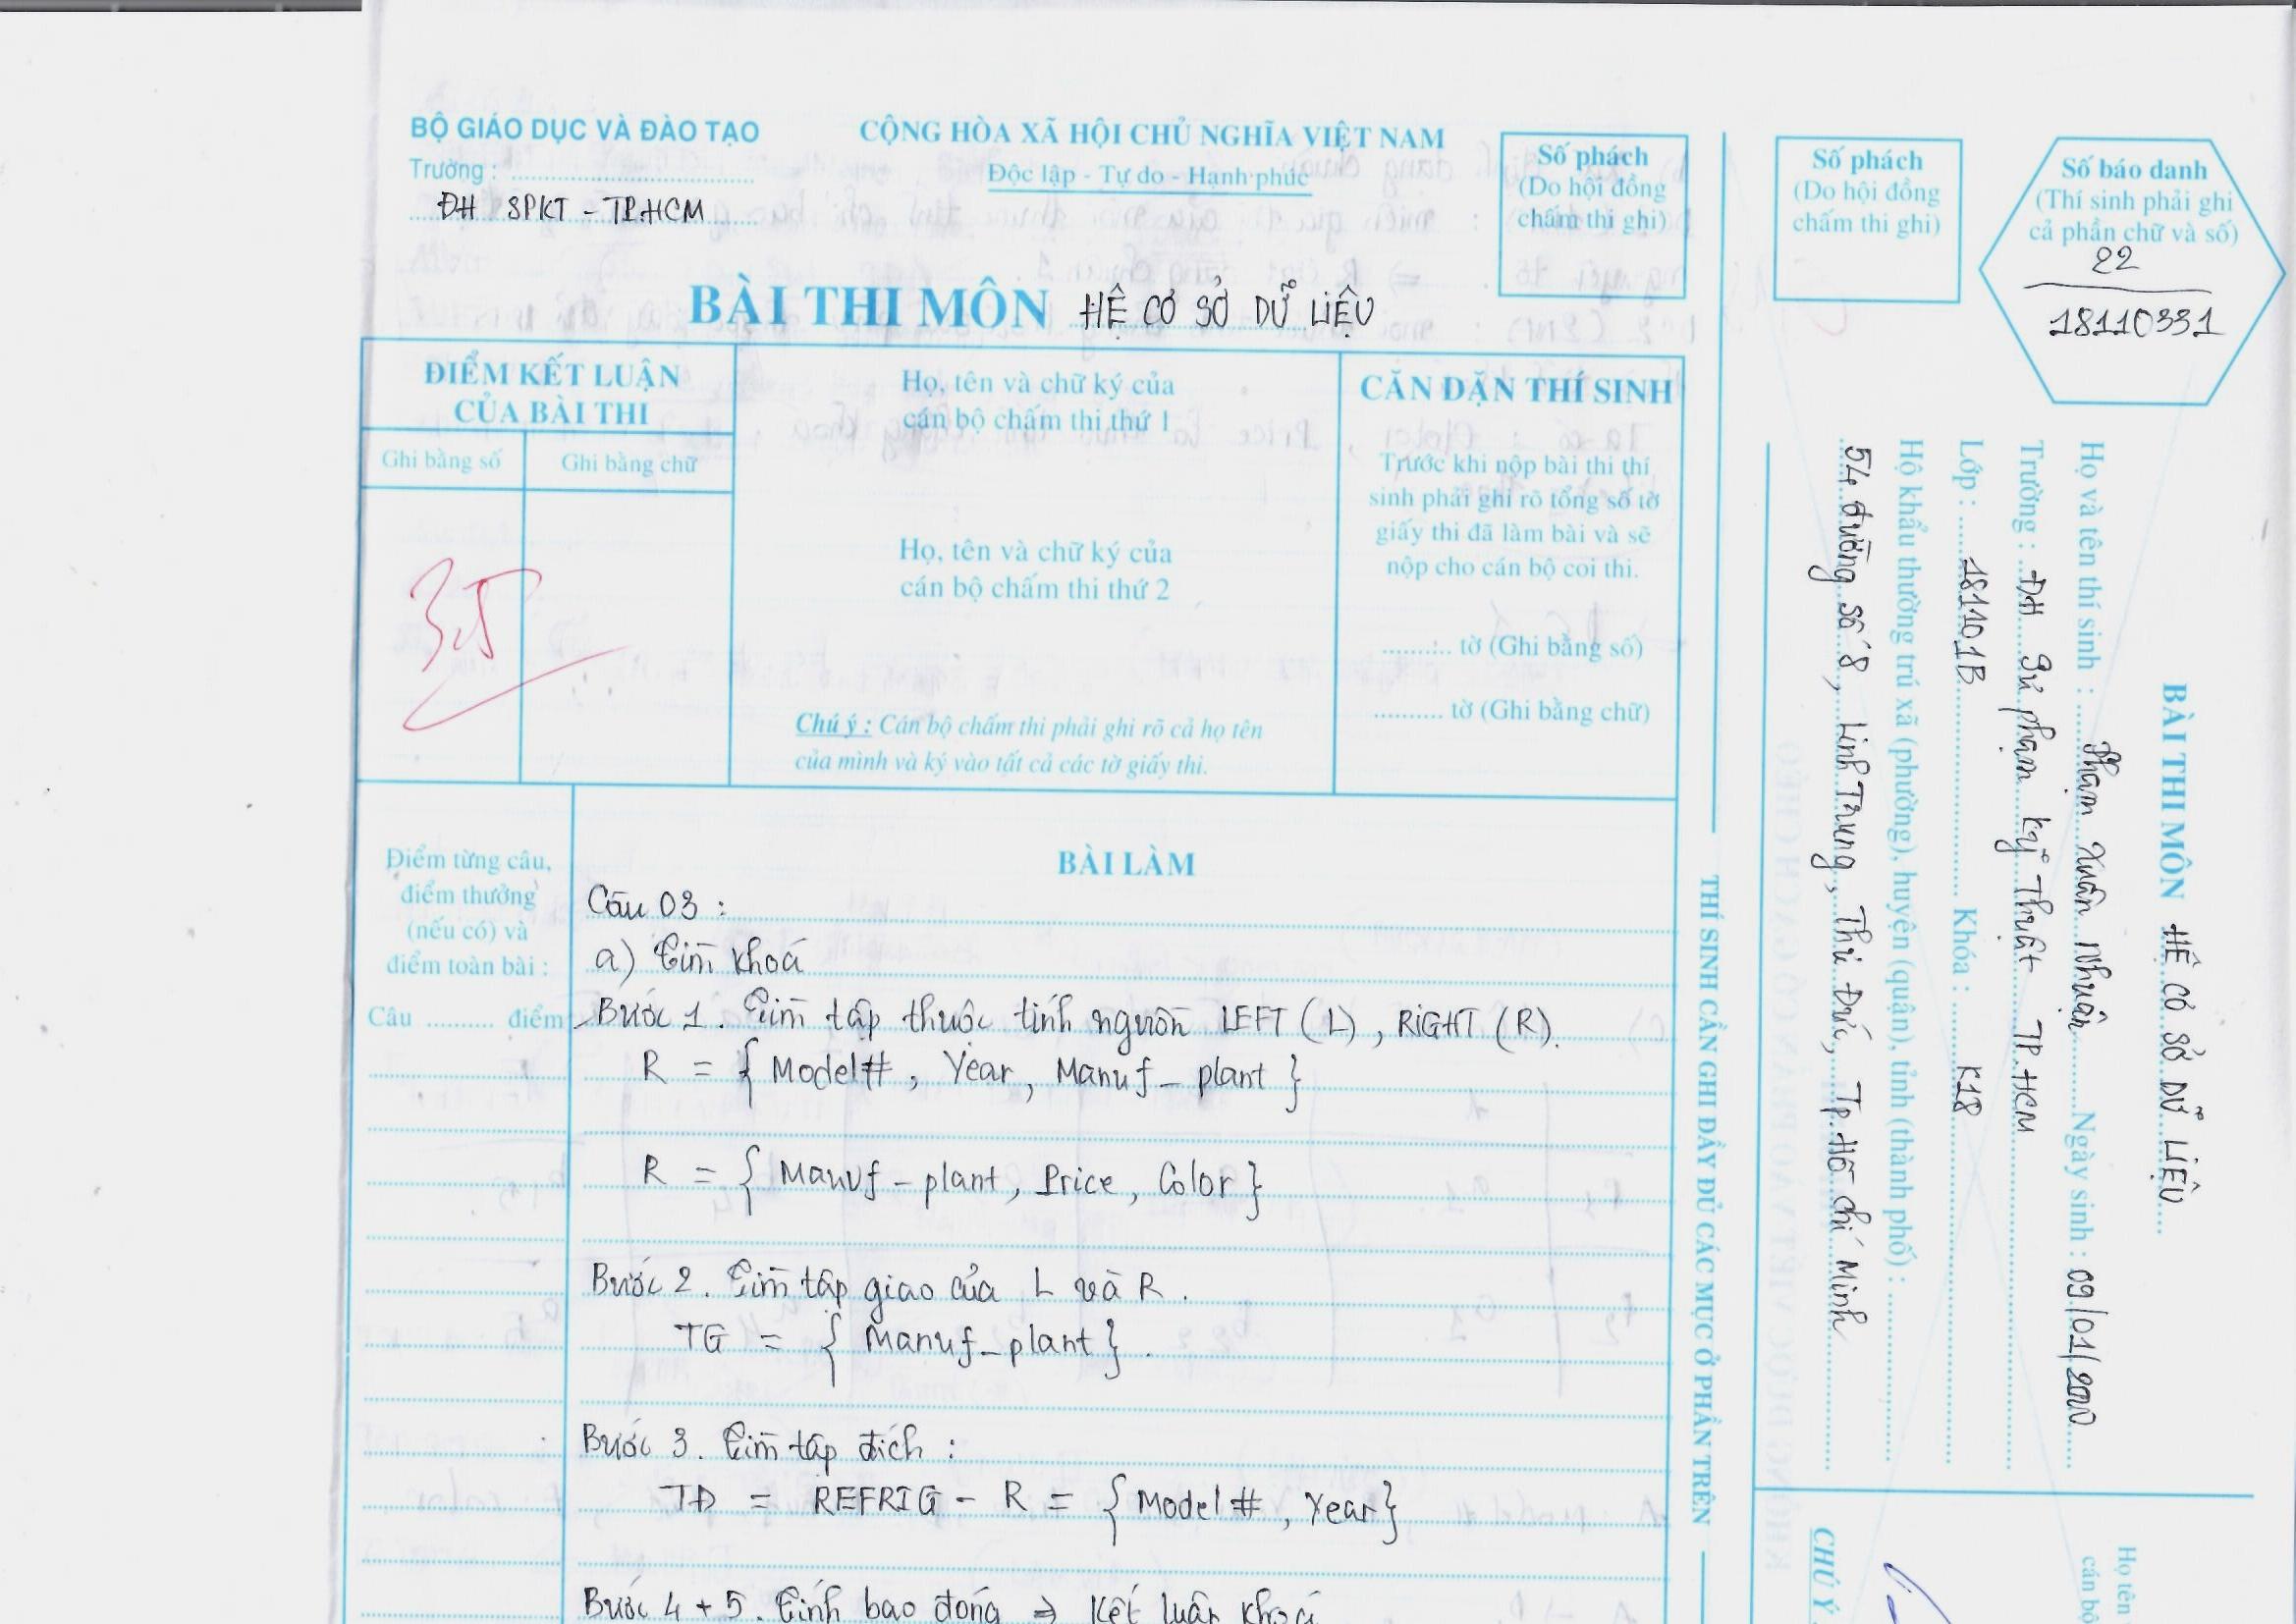 BỘ GIÁO DỤC VÀ ĐÀO TẠO
Trường : ..............................
ĐH SPKT - TP.HCM
CỘNG HÒA XÃ HỘI CHỦ NGHĨA VIỆT NAM
Độc lập - Tự do - Hạnh phúc
Số phách
(Do hội đồng
chấm thi ghi)
BÀI THI MÔN HỆ CƠ SỞ DỮ LIỆU
ĐIỂM KẾT LUẬN
CỦA BÀI THI
Ghi bằng số
Ghi bằng chữ
3,5
Họ, tên và chữ ký của
cán bộ chấm thi thứ 1
Họ, tên và chữ ký của
cán bộ chấm thi thứ 2
Chú ý : Cán bộ chấm thi phải ghi rõ cả họ tên
của mình và ký vào tất cả các tờ giấy thi.
CĂN DẶN THÍ SINH
Trước khi nộp bài thi thí
sinh phải ghi rõ tổng số tờ
giấy thi đã làm bài và sẽ
nộp cho cán bộ coi thi.
.......... tờ (Ghi bằng số)
.......... tờ (Ghi bằng chữ)
Điểm từng câu,
điểm thưởng
(nếu có) và
điểm toàn bài :
Câu .......... điểm
BÀI LÀM
Câu 03 :
a) Tìm khoá
Bước 1. Tìm tập thuộc tính nguồn LEFT (L), RIGHT (R).
R = { Model#, Year, Manuf_plant }
R = { Manuf_plant, Price, Color }
Bước 2. Tìm tập giao của L và R.
TG = { Manuf_plant }.
Bước 3. Tìm tập đích :
TĐ = REFRIG - R = { Model#, Year }
Bước 4 + 5. Tính bao đóng => Kết luận khoá
THÍ SINH CẦN GHI ĐẦY ĐỦ CÁC MỤC Ở PHẦN TRÊN
Số phách
(Do hội đồng
chấm thi ghi)
Số báo danh
(Thí sinh phải ghi
cả phần chữ và số)
22
18110331
BÀI THI MÔN HỆ CƠ SỞ DỮ LIỆU
Họ và tên thí sinh : Phạm Xuân Nhuận Ngày sinh : 09/01/2000
Trường : ĐH Sư phạm Kỹ Thuật TP.HCM
Lớp : 181101B Khóa : K18
Hộ khẩu thường trú xã (phường), huyện (quận), tỉnh (thành phố) :
54 đường số 8, Linh Trung, Thủ Đức, Tp. Hồ Chí Minh
CHÚ Ý
Họ tên
cán bộ